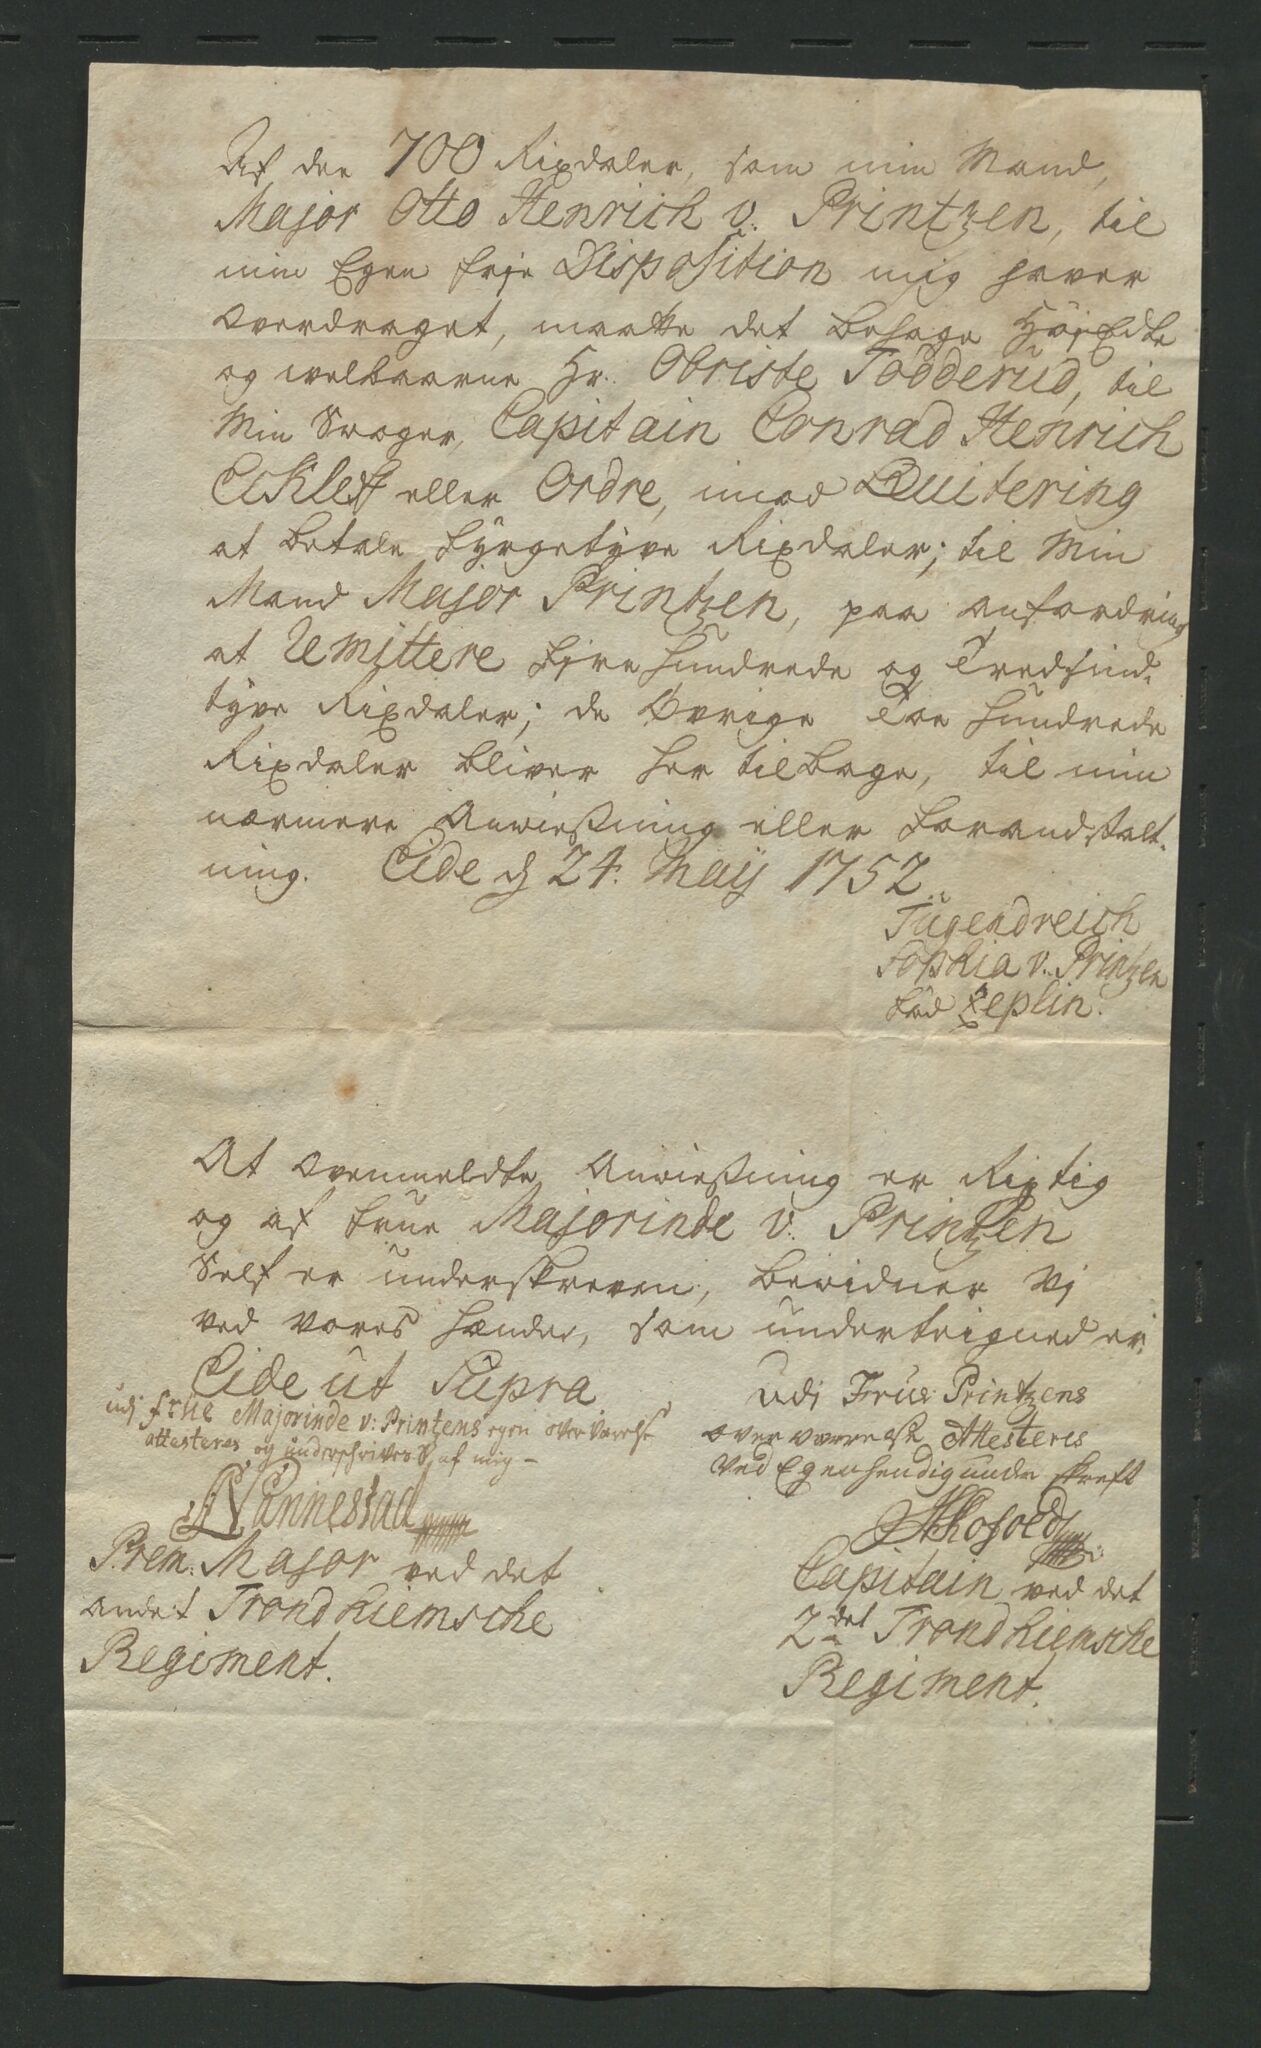 Af de 700 Rixdaler, som min Mand,
Major Otto Henrich v: Printzen, til
min Egen frje Disposition mig haver
overdraget, maatte det behage HöjEdle
og welbaarne Hr. Obriste Tödderüd, til
Min Swoger, Capitain Conrad Henrich
Eckleff eller Ordre, imod Quitering
at betale fyrgetyve Rixdaler; til Min
Mand Major Printzen, paa anfordring
at Remittere fire hundrede og Tredsinds-
tyve Rixdaler; de Övrige Toe hundrede
Rixdaler bliver her tilbage, til min
nærmere Anwießning eller foranstalt-
ning. Eide d 24. Maij 1752.
Tugendreich
Sophia v. Printzen
föd Zeplin.
At ovenmeldte Anwießning er Rigtig
og af frue Majorinde v: Printzen
Self er underskreven, bewidner Vj
ved vores hænder, som underteigned er.
Eide ut Supra
udj frue Majorinde v: Printzens egen overværelse
attesteres og underschrives af mig –
Nannestad
Prem: Major ved det
andet Trondhiemsche
Regiment.
udi Frue Printzens
overværelse Attesteres
ved Egenhendig underskreft
Kofoed
Capitain ved det
2det Trondhiemsche
Regiment.